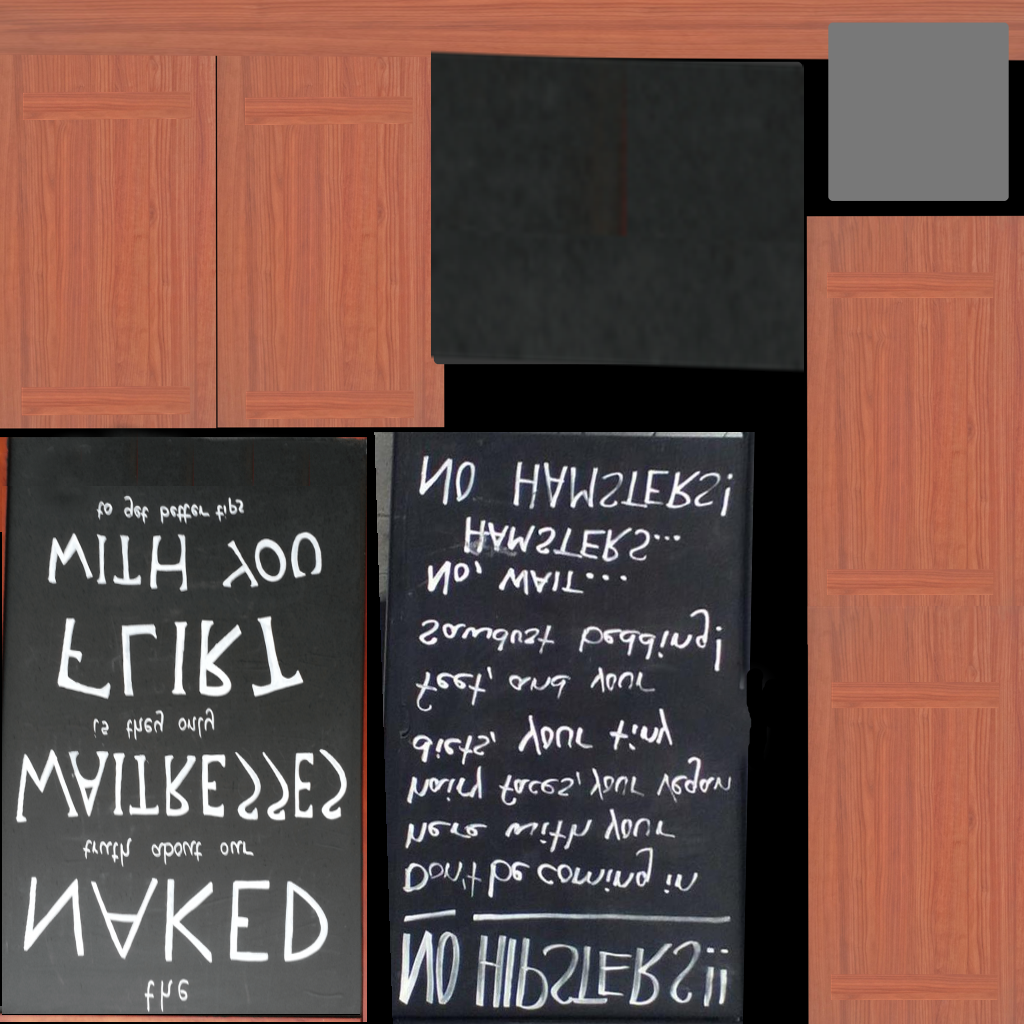 the
NAKED
truth about our
WAITRESSES
is they only
FLIRT
WITH YOU
to get better tips
NO HIPSTERS!!
Don't be coming in
here with your
hairy faces, your vegan
diets, your tiny
feet, and your
sawdust bedding!
No, WAIT...
HAMSTERS...
NO HAMSTERS!